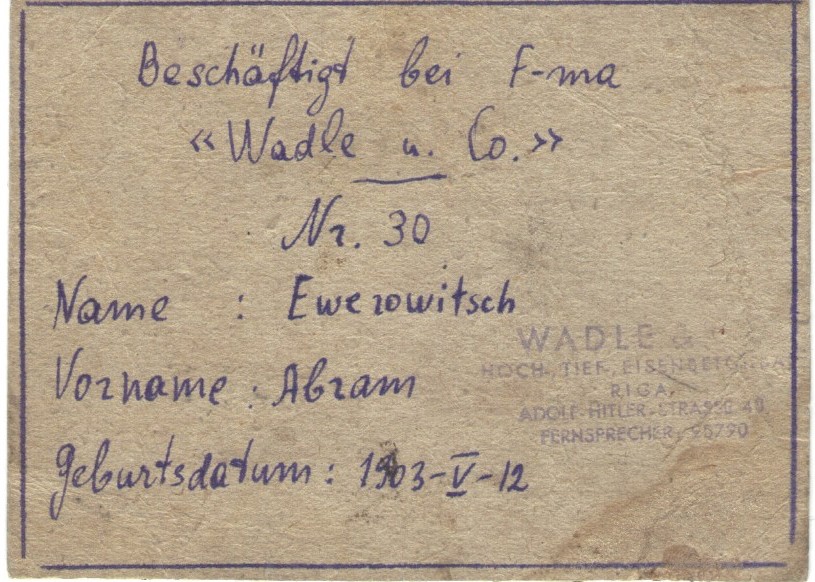 Beschäftigt bei F-ma
«Wadle u. Co.»
Nr. 30
Name : Ewerowitsch
Vorname : Abram
Geburtsdatum : 1903-V-12
WADLE
HOCH-, TIEF,
RIGA,
ADOLF-HITLER-STRASSE
FERNSPRECHER,